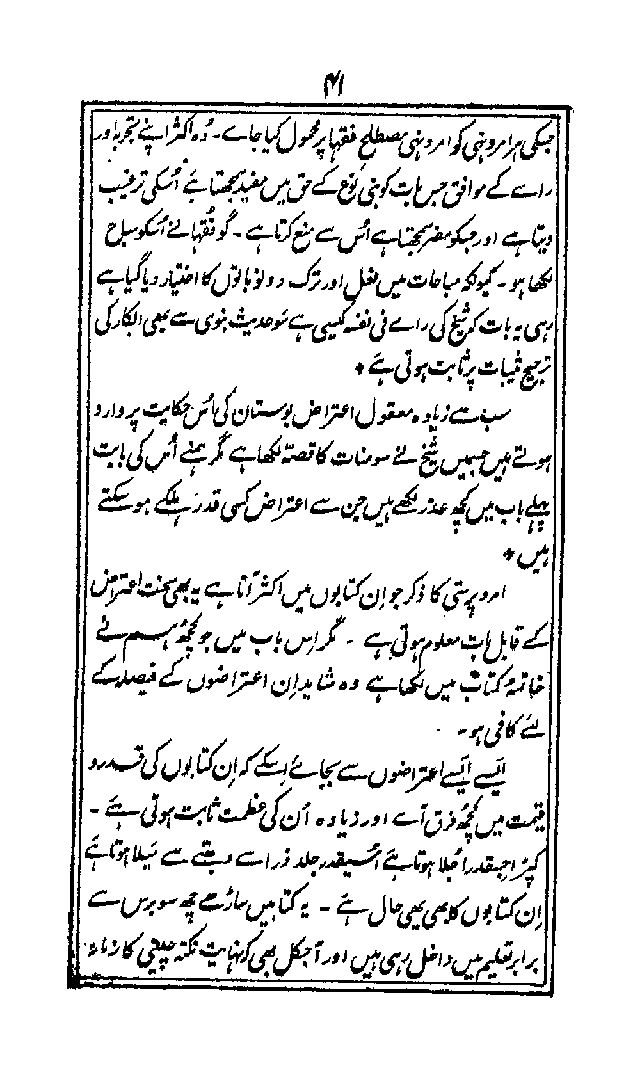 ۴۱
جسکی ہر امر و نہی کو امر و نہی مصطلح فقہا پر محمول کیا جاے۔ وُہ اکثر اپنے تجربہ اور
راے کے موافق جس بات کو بنی نوع کے حق میں مفید سمجھتا ہے اُسکی ترغیب
دیتا ہے اور جسکو مضر سمجھتا ہے اُس سے منع کرتا ہے۔ گو فُقہا نے اُسکو مباح
لکھا ہو۔ کیونکہ مباحات میں فعل اور ترک دونو باتوں کا اختیار دیا گیا ہے
رہی یہ بات کہ شیخ کی راے فی نفسہ کیسی ہے سو حدیث نبوی سے بھی ابکار کی
ترجیح ثیبات پر ثابت ہوتی ہے *
سب سے زیادہ معقول اعتراض بوستان کی اُس حکایت پر وارد
ہوتے ہیں جسمیں شیخ نے سومنات کا قصّہ لکھا ہے مگر ہمنے اُس کی بابت
پہلے باب میں کچھ عذر لکھے ہیں جن سے اعتراض کسی قدر ہلکے ہو سکتے
ہیں *
امرد پرستی کا ذکر جو اِن کتابوں میں اکثر آتا ہے یہ بھی سخت اعتراض
کے قابل بات معلوم ہوتی ہے ۔ مگر اِس باب میں جو کچھ ہم نے
خاتمۂ کتاب میں لکھا ہے وہ شاید اِن اعتراضوں کے فیصلہ کے
لئے کافی ہو۔
ایسے ایسے اعتراضوں سے بجاے اسکے کہ اِن کتابوں کی قدر و
قیمت میں کچھ فرق آے اور زیادہ اُن کی عظمت ثابت ہوتی ہے۔
کپڑا جسقدر اُجلا ہوتا ہے اُسیقدر جلد ذرا سے دھبّے سے مَیلا ہوتا ہے
اِن کتابوں کا بھی یہی حال ہے ۔ یہ کتابیں ساڑھے چھ سو برس سے
برابر تعلیم میں داخل رہی ہیں اور آجکل بھی کہ نہایت نکتہ چینی کا زمانہ